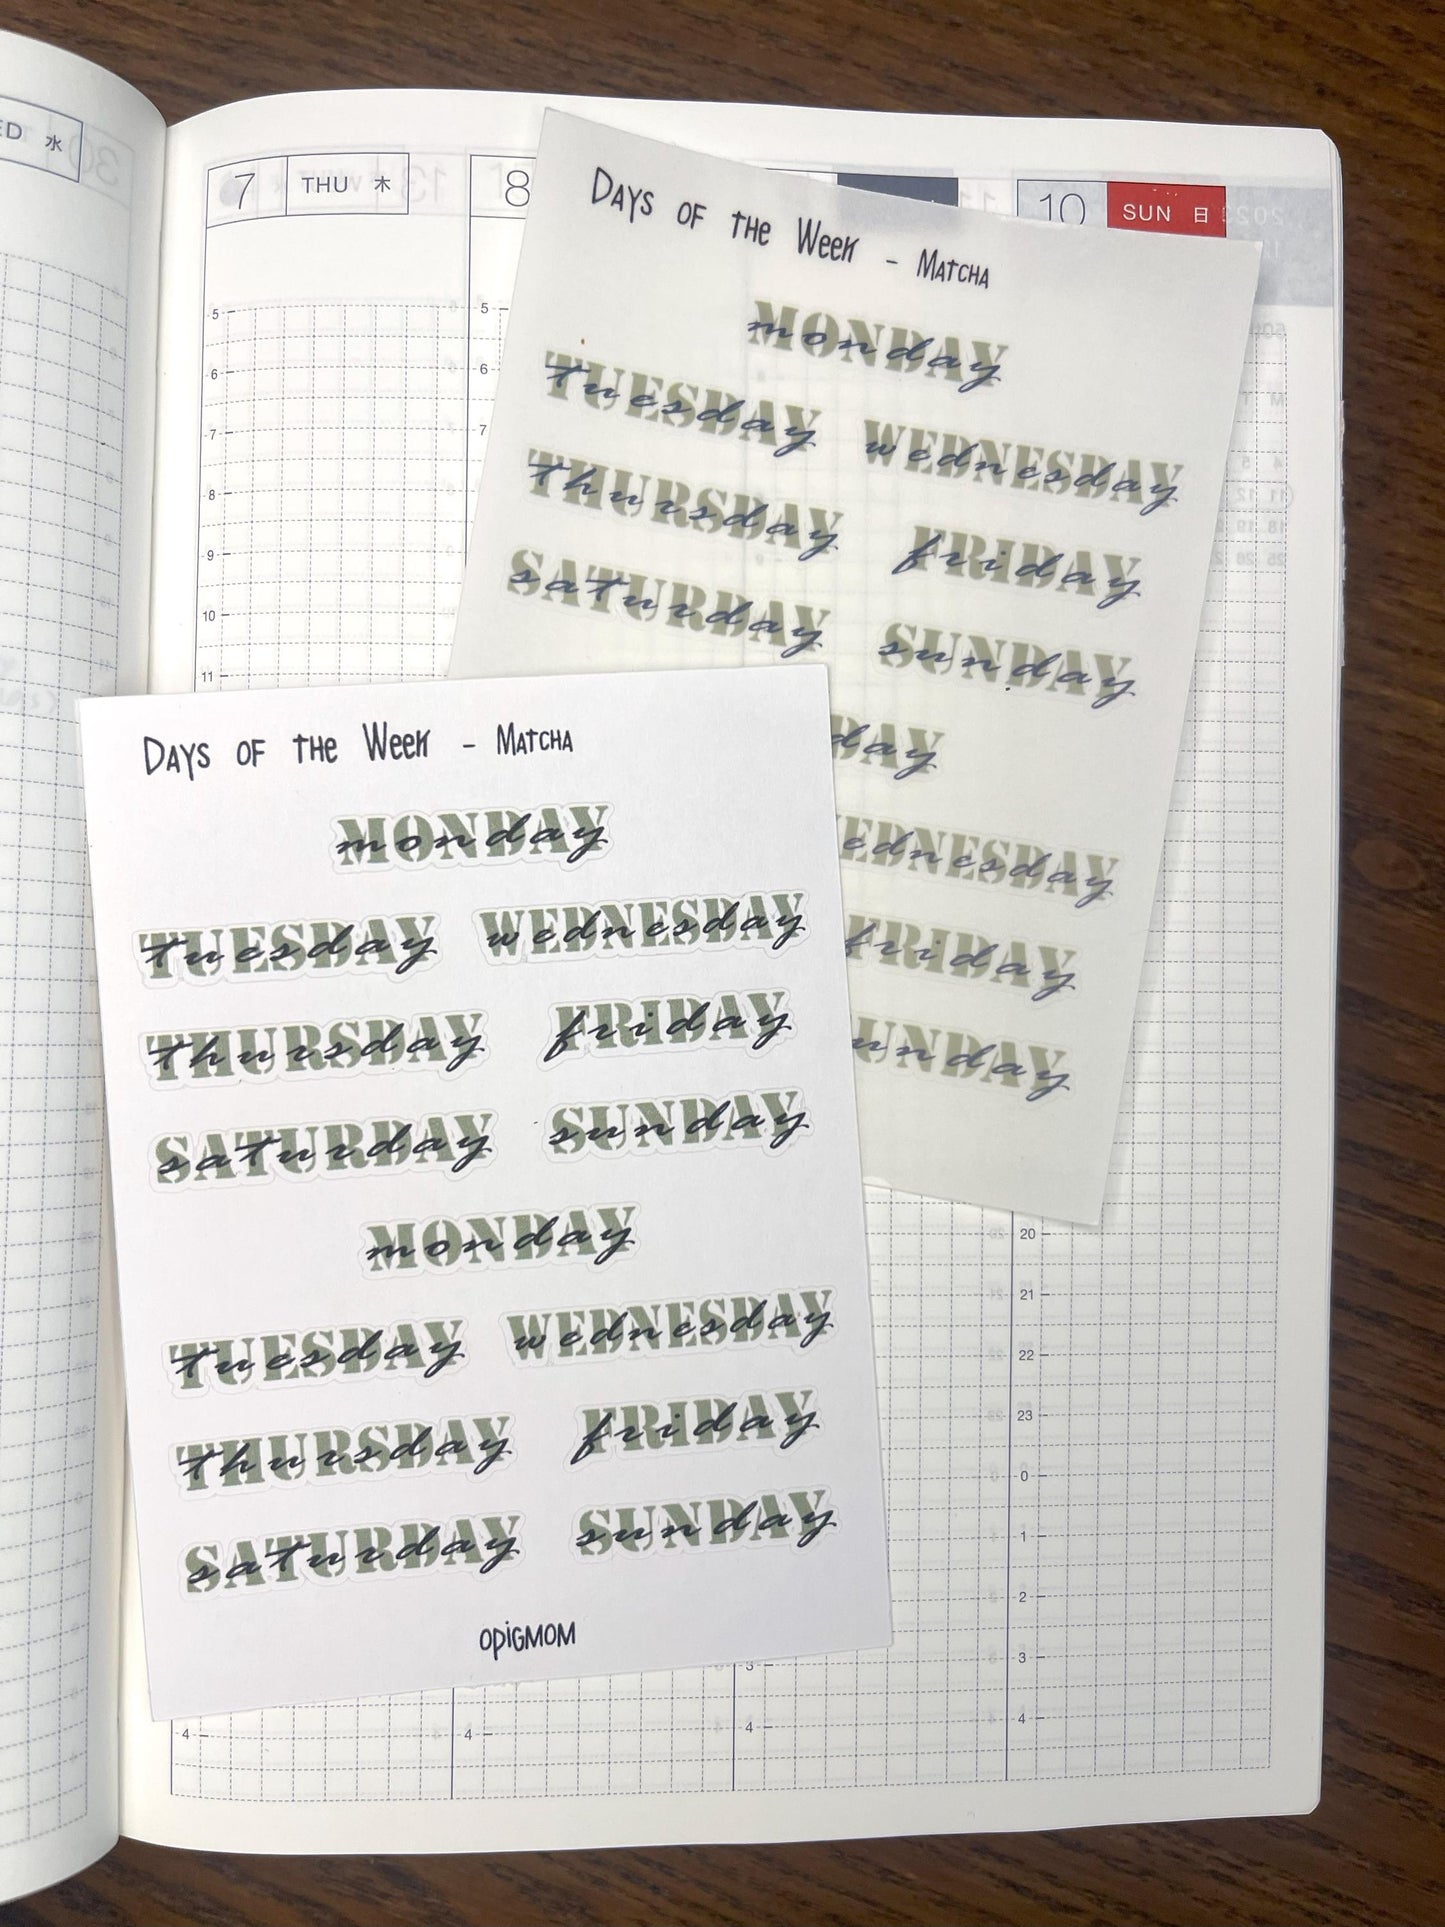 ED 水
7 THU 木
8
10 SUN 日
5
6
7
8
9
10
11
5
6
7
DAYS OF THE WEEK - MATCHA
MONDAY monday
TUESDAY tuesday WEDNESDAY wednesday
THURSDAY thursday FRIDAY friday
SATURDAY saturday SUNDAY sunday
DAY day
EDNESDAY ednesday
FRIDAY friday
UNDAY unday
DAYS OF THE WEEK - MATCHA
MONDAY monday
TUESDAY tuesday WEDNESDAY wednesday
THURSDAY thursday FRIDAY friday
SATURDAY saturday SUNDAY sunday
MONDAY monday
TUESDAY tuesday WEDNESDAY wednesday
THURSDAY thursday FRIDAY friday
SATURDAY saturday SUNDAY sunday
OPIGMOM
20
21
22
23
0
1
2
3 3
4 4 4 4